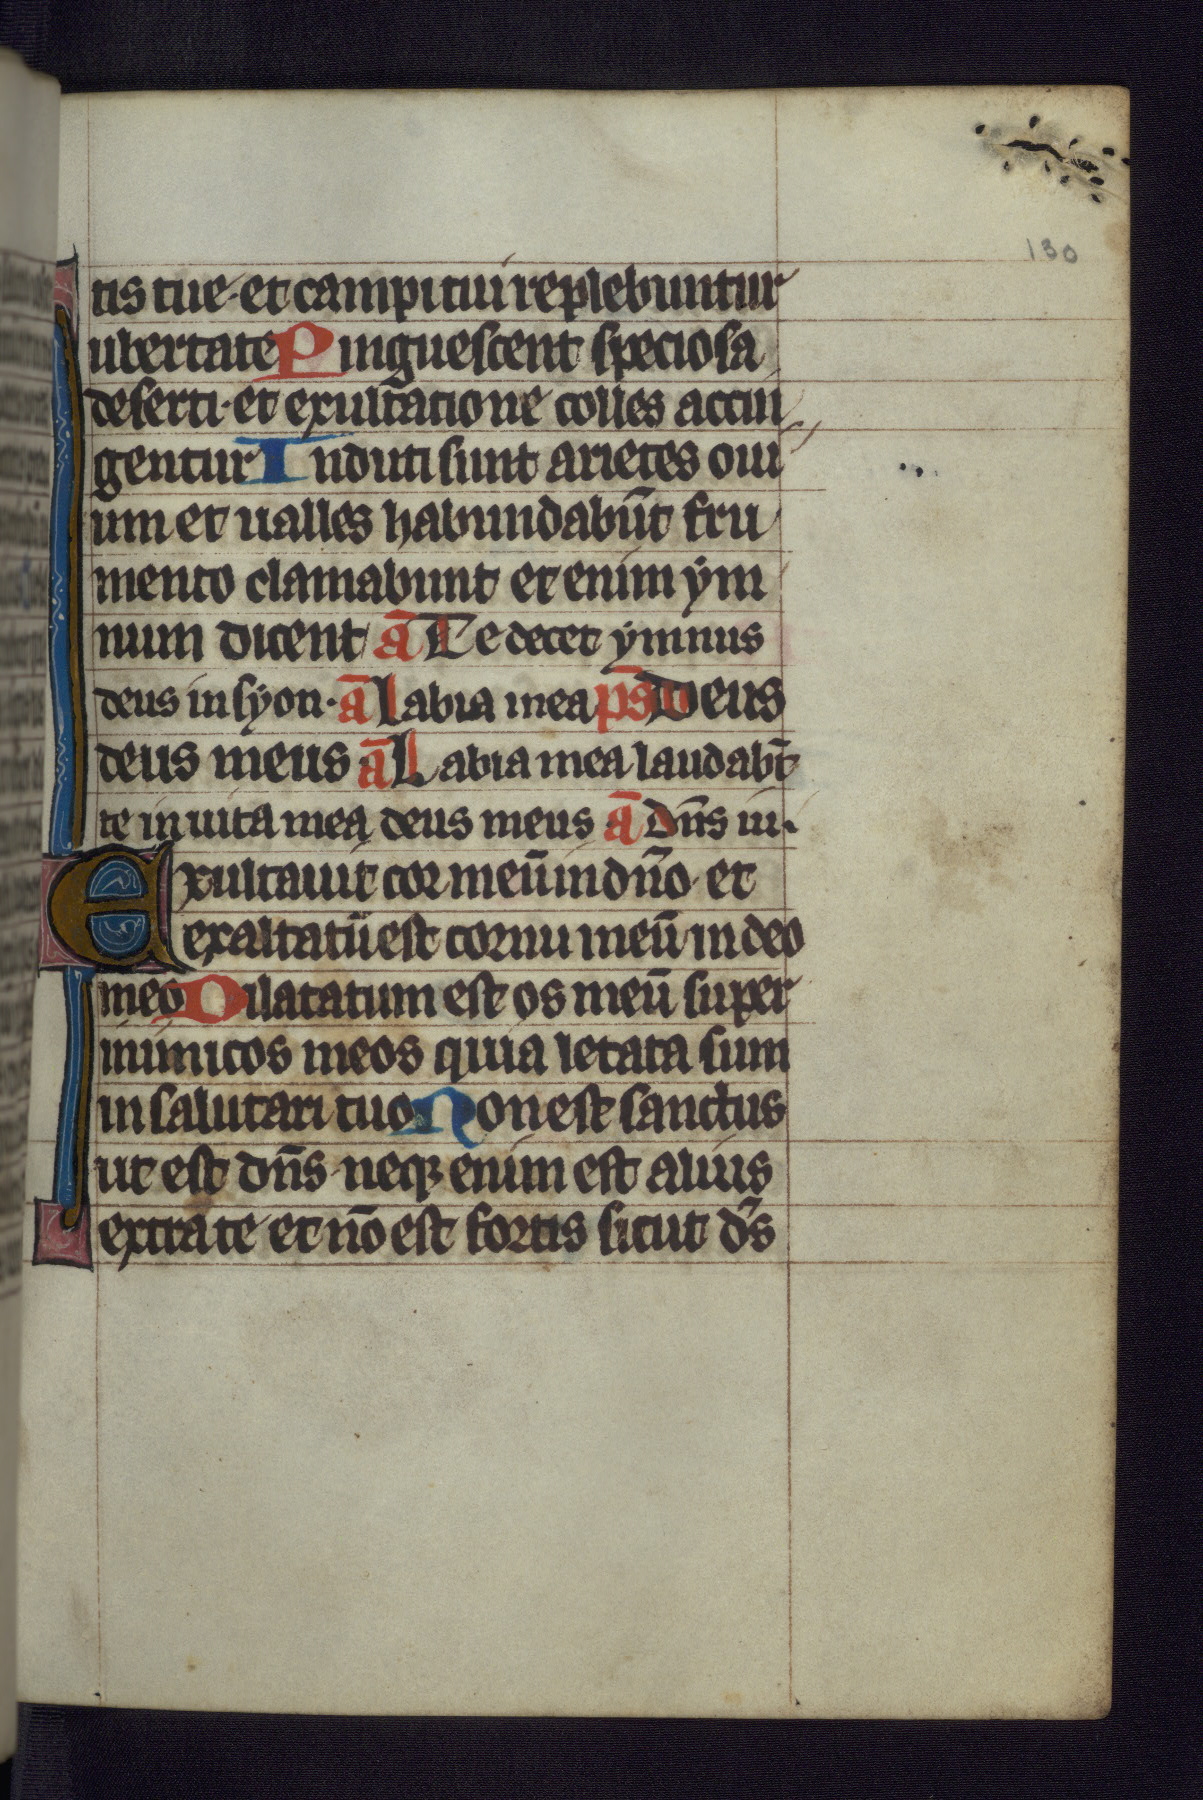 130
tis tue· et campi tui replebuntur
ubertate Pinguescent speciosa
deserti· et exultatione colles accin
gentur Induti sunt arietes oui
um et ualles habundabūt fru
mento clamabunt et enim ẏm
num dicent ā Te decet ẏmnus
deus in sẏon· ā Labia mea ps̄ Deus
deus meus ā Labia mea laudabt̄
te in uita mea deus meus ā Dn̄s iu·
Exultauit cor meū in dn̄o· et
exaltatū est cornu meū in deo
meo Dilatatum est os meū super
inimicos meos quia letata sum
in salutari tuo Non est sanctus
ut est dn̄s· neqꝫ enim est alius
extra te· et nō est fortis sicut ds̄